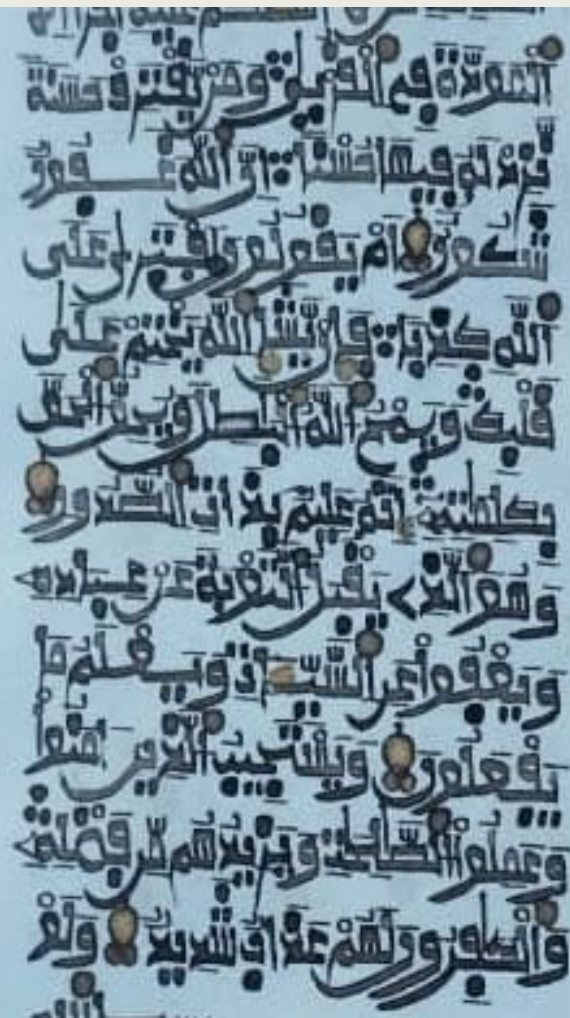 اَ۬لْمَوَدَّةَ فِے اِ۬لْقُرْب۪يٰ وَمَنْ يَّقْتَرِفْ حَسَنَةً
نَّزِدْ لَهُۥ فِيهَا حُسْناً اِنَّ اَ۬للَّهَ غَفُورٌ
شَكُورٌ اَمْ يَقُولُونَ اَ۪فْتَر۪يٰ عَلَي
اَ۬للَّهِ كَذِباً فَإِنْ يَّشَإِ اِ۬للَّهُ يَخْتِمْ عَلَيٰ
قَلْبِكَ وَيَمْحُ اُ۬للَّهُ اُ۬لْبَٰطِلَ وَيُحِقُّ اُ۬لْحَقَّ
بِكَلِمَٰتِهِۦٓ إِنَّهُۥ عَلِيمٌۢ بِذَاتِ اِ۬لصُّدُورِ
وَهُوَ اَ۬لذِے يَقْبَلُ اُ۬لتَّوْبَةَ عَنْ عِبَادِهِۦ
وَيَعْفُواْ عَنِ اِ۬لسَّيِّـَٔاتِ وَيَعْلَمُ مَا
يَفْعَلُونَ وَيَسْتَجِيبُ اُ۬لذِينَ ءَامَنُواْ
وَعَمِلُواْ اُ۬لصَّٰلِحَٰتِ وَيَزِيدُهُم مِّن فَضْلِهِۦ
وَالْكَٰفِرُونَ لَهُمْ عَذَابٌ شَدِيدٌ وَلَوْ